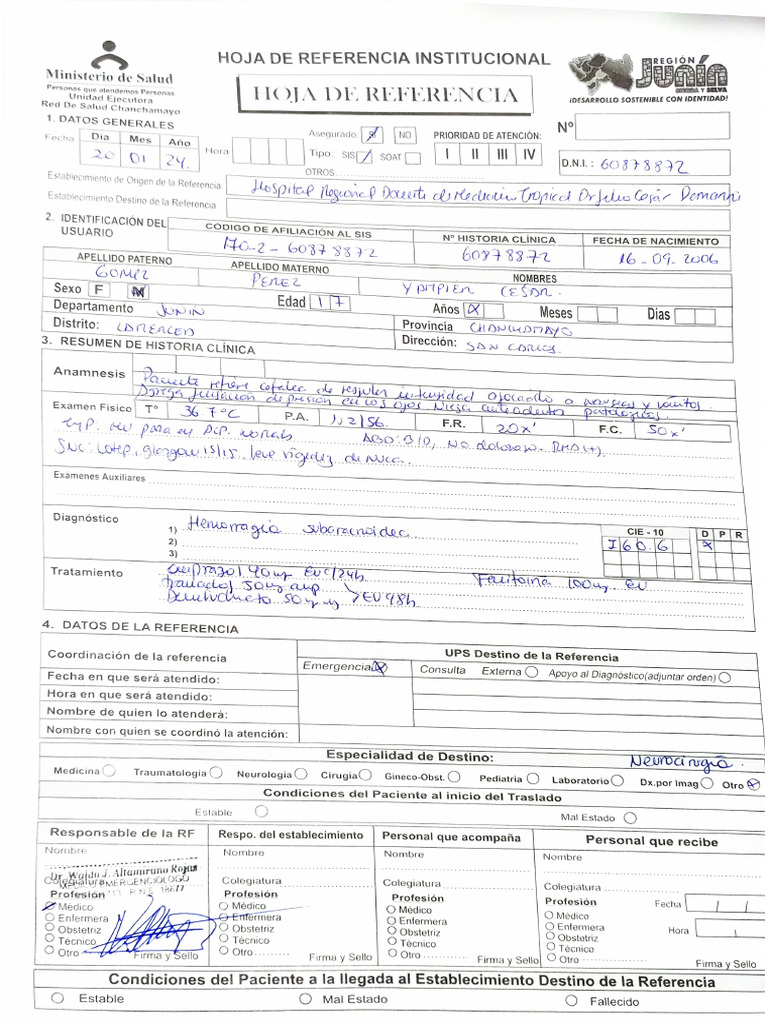 Ministerio de Salud
Personas que atendemos Personas
Unidad Ejecutora
Red De Salud Chanchamayo
HOJA DE REFERENCIA INSTITUCIONAL
HOJA DE REFERENCIA
REGIÓN
JUNÍN
¡DESARROLLO SOSTENIBLE CON IDENTIDAD!
1. DATOS GENERALES
Fecha Dia Mes Año Hora
20 01 24.
Asegurado: SI NO
Tipo: SIS SOAT
OTROS
PRIORIDAD DE ATENCIÓN:
I II III IV
Nº
D.N.I.: 60878872
Establecimiento de Origen de la Referencia Hospital Regional Docente de Medicina Tropical Dr Julio Cesár Demarini
Establecimiento Destino de la Referencia
2. IDENTIFICACIÓN DEL USUARIO
CÓDIGO DE AFILIACIÓN AL SIS Nº HISTORIA CLÍNICA FECHA DE NACIMIENTO
170-2-60878872 60878872 16-09-2006
APELLIDO PATERNO APELLIDO MATERNO NOMBRES
GOMEZ PEREZ CESAR.
Sexo F M Edad 17 Años X Meses Dias
Departamento JUNIN Provincia CHANCHAMAYO
Distrito: LA MERCED Dirección: SAN CARLOS.
3. RESUMEN DE HISTORIA CLÍNICA
Anamnesis Paciente refiere cefalea de regular intensidad asociado a nauseas y vomitos.
en los ojos Niega antecedentes patologicos.
Examen Físico Tº 36 7°C P.A. 112/56 F.R. 20x' F.C. 50x'
MV pasa en ACP. ABD: B/D, No doloroso. RHA(+)
SNC: LOTEP, glasgow 15/15 leve rigidez de nuca.
Exámenes Auxiliares
Diagnóstico CIE - 10 D P R
1) Hemorragia subaracnoidea I60.6 X
2)
3)
Tratamiento Omeprazol 40mg EV c/24h Fenitoina 100mg. EV
tramadol 50mg amp
50mg EV
4. DATOS DE LA REFERENCIA
Coordinación de la referencia
UPS Destino de la Referencia
Emergencia Consulta Externa Apoyo al Diagnóstico(adjuntar orden)
Fecha en que será atendido:
Hora en que será atendido:
Nombre de quien lo atenderá:
Nombre con quien se coordinó la atención:
Especialidad de Destino: Neurocirugia.
Medicina Traumatología Neurología Cirugía Gineco-Obst. Pediatria Laboratorio Dx.por Imag Otro
Condiciones del Paciente al inicio del Traslado
Estable Mal Estado
Responsable de la RF Respo. del establecimiento Personal que acompaña Personal que recibe
Nombre Nombre Nombre Nombre
Dr. Waldo J. Altamirano Rojas
Colegiatura Colegiatura Colegiatura Colegiatura
EMERGENCIOLOGO
Profesión Profesión Profesión Profesión Fecha
Médico Médico Médico Médico
Enfermera Enfermera Enfermera Enfermera Hora
Obstetriz Obstetriz Obstetriz Obstetriz
Técnico Técnico Técnico Técnico
Otro Firma y Sello Otro Firma y Sello Otro Firma y Sello Otro Firma y Sello
Condiciones del Paciente a la llegada al Establecimiento Destino de la Referencia
Estable Mal Estado Fallecido